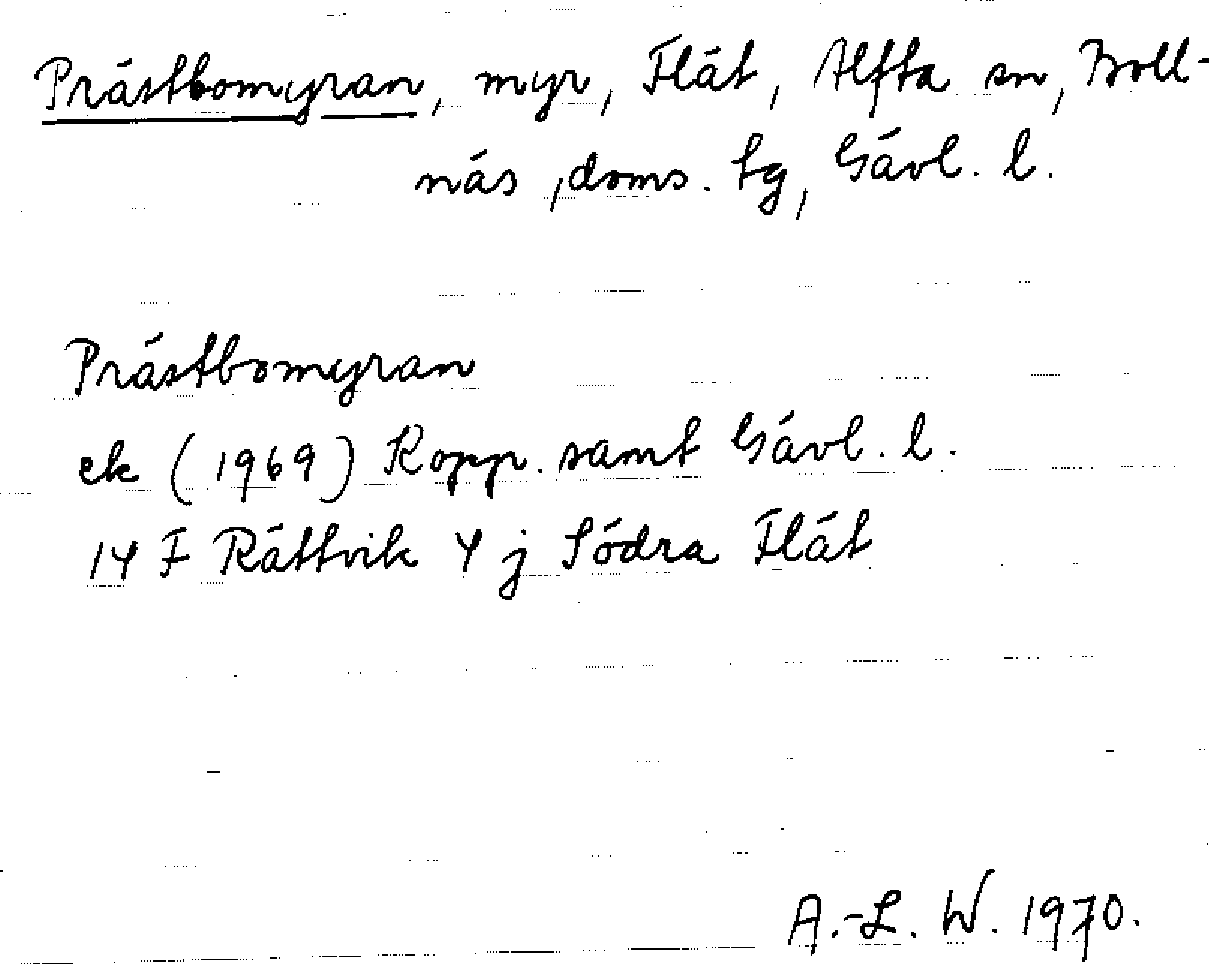 Prästbomyran, myr, Flät, Alfta sn, Boll-
näs, doms. tg, Gävl. l.
Prästbomyran
ek (1969) Kopp. samt Gävl. l.
14 F Rättvik 4 j Södra Flät
A.-L. W. 1970.